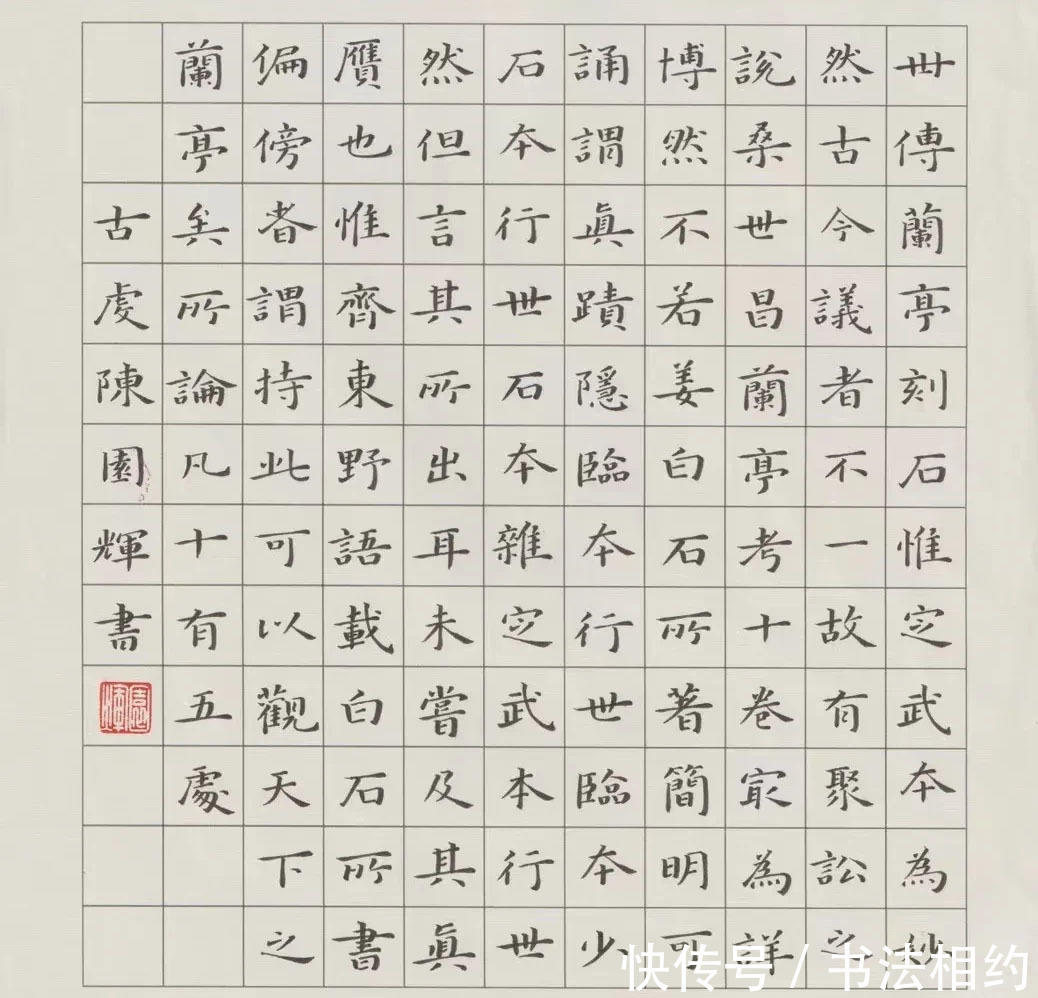 世傳蘭亭刻石惟定武本為妙
然古今議者不一故有聚訟之
說桑世昌蘭亭考十卷㝡為詳
博然不若姜白石所著簡明可
誦謂眞蹟隱臨本行世臨本少
石本行世石本雜定武本行世
然但言其所出耳未嘗及其眞
贋也惟齊東野語載白石所書
偏傍者謂持此可以觀天下之
蘭亭矣所論凡十有五處
古虔陳園輝書
園輝
快传号 / 书法相约